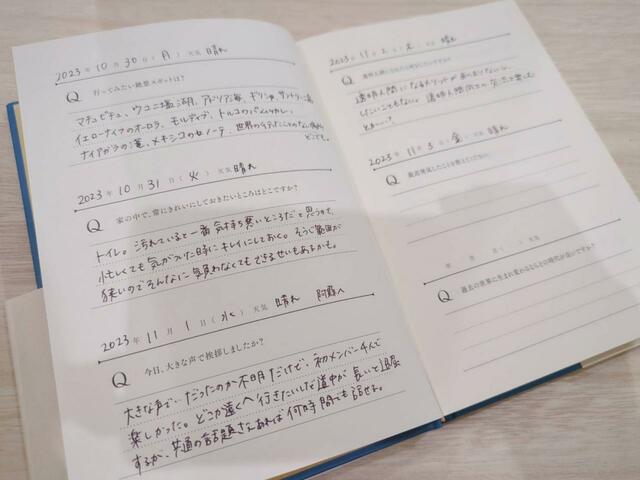 2023年 10月 30日(月) 天気 晴れ
Q 行ってみたい絶景スポットは?
マチュピチュ、ウユニ塩湖、アドリア海、ギリシャのサントリーニ島
イエローナイフのオーロラ、モルディブ、トルコのパムッカレ、
ナイアガラの滝、メキシコのセノーテ、世界の行ったことのない場所
どこでも。
2023年 10月 31日(火) 天気 晴れ
Q 家の中で、常にきれいにしておきたいところはどこですか?
トイレ。汚れていると一番気持ち悪いところだと思うので、
忙しくても気がついた時にキレイにしておく。そうじ範囲が
狭いのでそんなに気負わなくてもできるせいもあるかも。
2023年 11月 1日(水) 天気 晴れ 阿蘇へ
Q 今日、大きな声で挨拶しましたか?
大きな声で…だったのか不明だけど、初メンバー4人で
楽しかった。どこか遠くへ行きたいしな道中が長いと退屈
するが、共通の話題さえあれば何時間でも話せる。
2023年 11月 2日(木) 天気 晴れ
Q 透明人間になれたら何をしたいですか?
透明人間になるメリットが
したいこともない。透明人間同士の
とか…?
2023年 11月 3日(金) 天気 晴れ
Q 最近発見したことを教えてください。
年 月 日( ) 天気
Q 過去の世界に生まれ変わるならどの時代が良いですか?